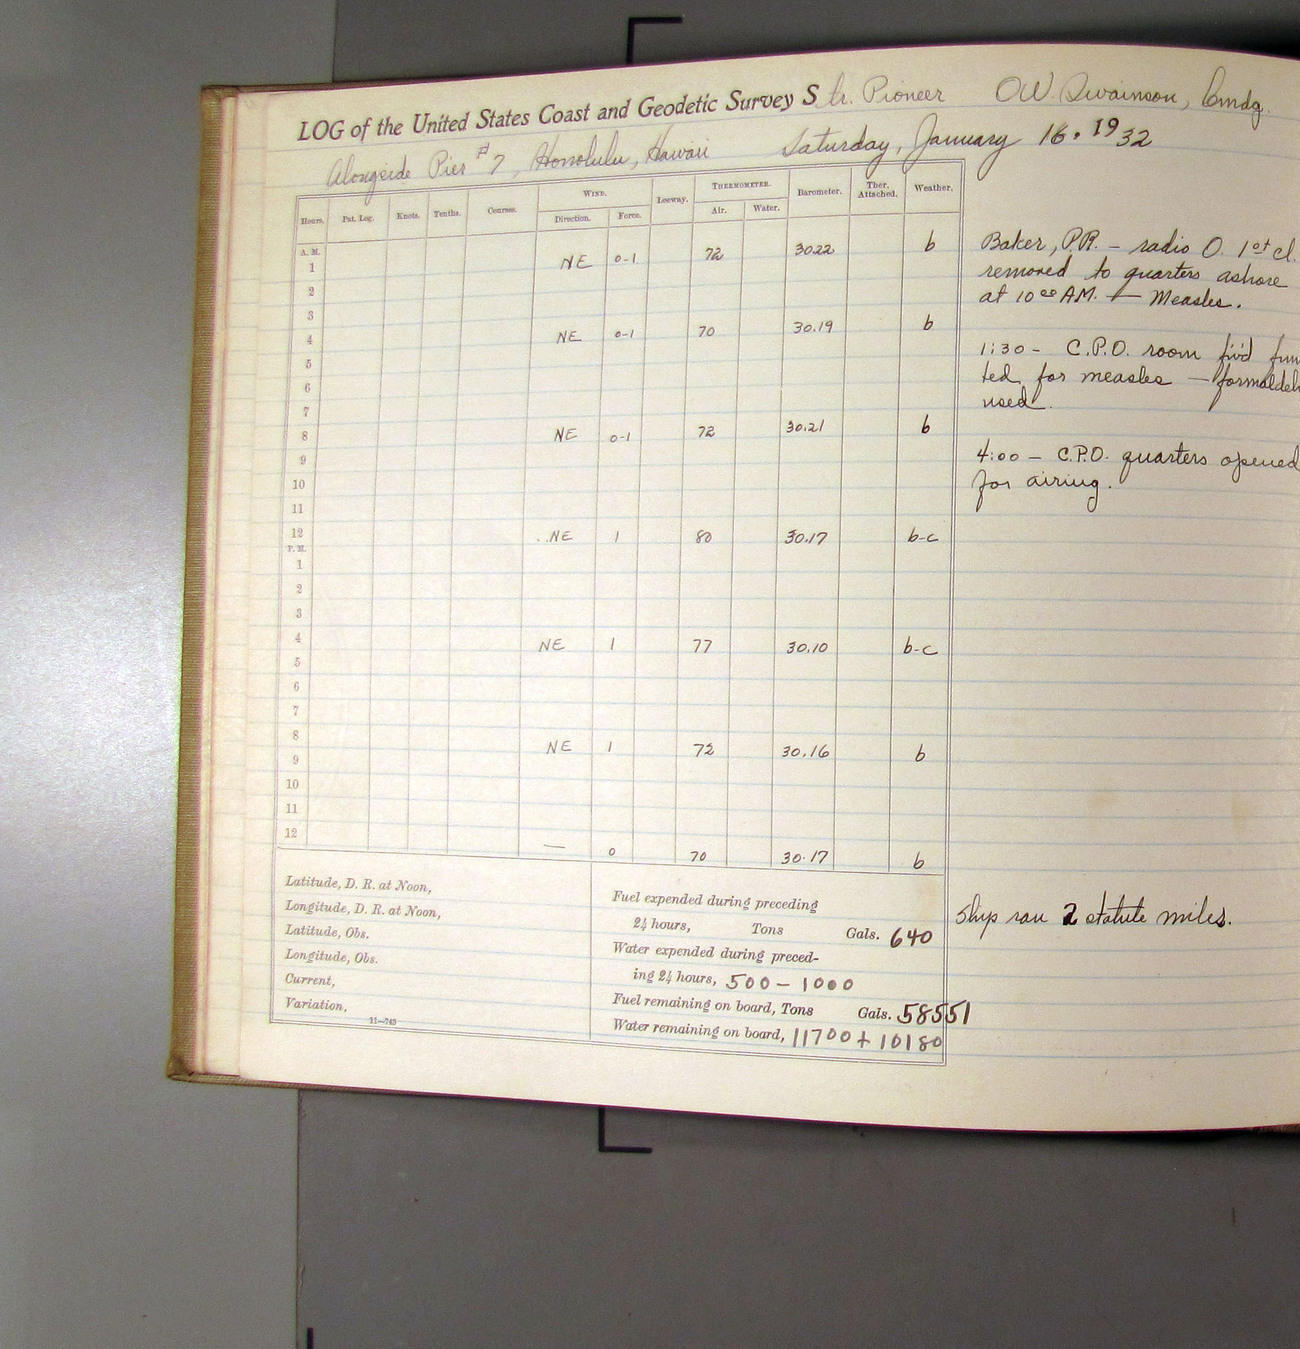 LOG of the United States Coast and Geodetic Survey Str. Pioneer O.W. Swainson, Cmdg.
Alongside Pier #7, Honolulu, Hawaii Saturday, January 16, 1932
Hours. Pat. Log. Knots. Tenths. Courses. WIND. Leeway. THERMOMETER. Barometer. Ther. Attached. Weather.
Direction. Force. Air. Water.
A. M.
1 NE 0-1 72 3022 b
2
3
4 NE 0-1 70 30.19 b
5
6
7
8 NE 0-1 72 30.21 b
9
10
11
12 NE 1 80 30.17 b-c
P. M.
1
2
3
4 NE 1 77 30.10 b-c
5
6
7
8 NE 1 72 30.16 b
9
10
11
12
— 0 70 30.17 b
Baker, P.R. – radio O. 1st cl.
removed to quarters ashore
at 10 00 AM. — Measles.
1:30 – C.P.O. room
ted for measles – formaldeh
used.
4:00 – C.P.O. quarters opened
for airing.
Latitude, D. R. at Noon,
Longitude, D. R. at Noon,
Latitude, Obs.
Longitude, Obs.
Current,
Variation,
11—743
Fuel expended during preceding
24 hours, Tons Gals. 640
Water expended during preced-
ing 24 hours, 500 – 1000
Fuel remaining on board, Tons Gals. 58551
Water remaining on board, 11700 + 10180
Ship ran 2 statute miles.